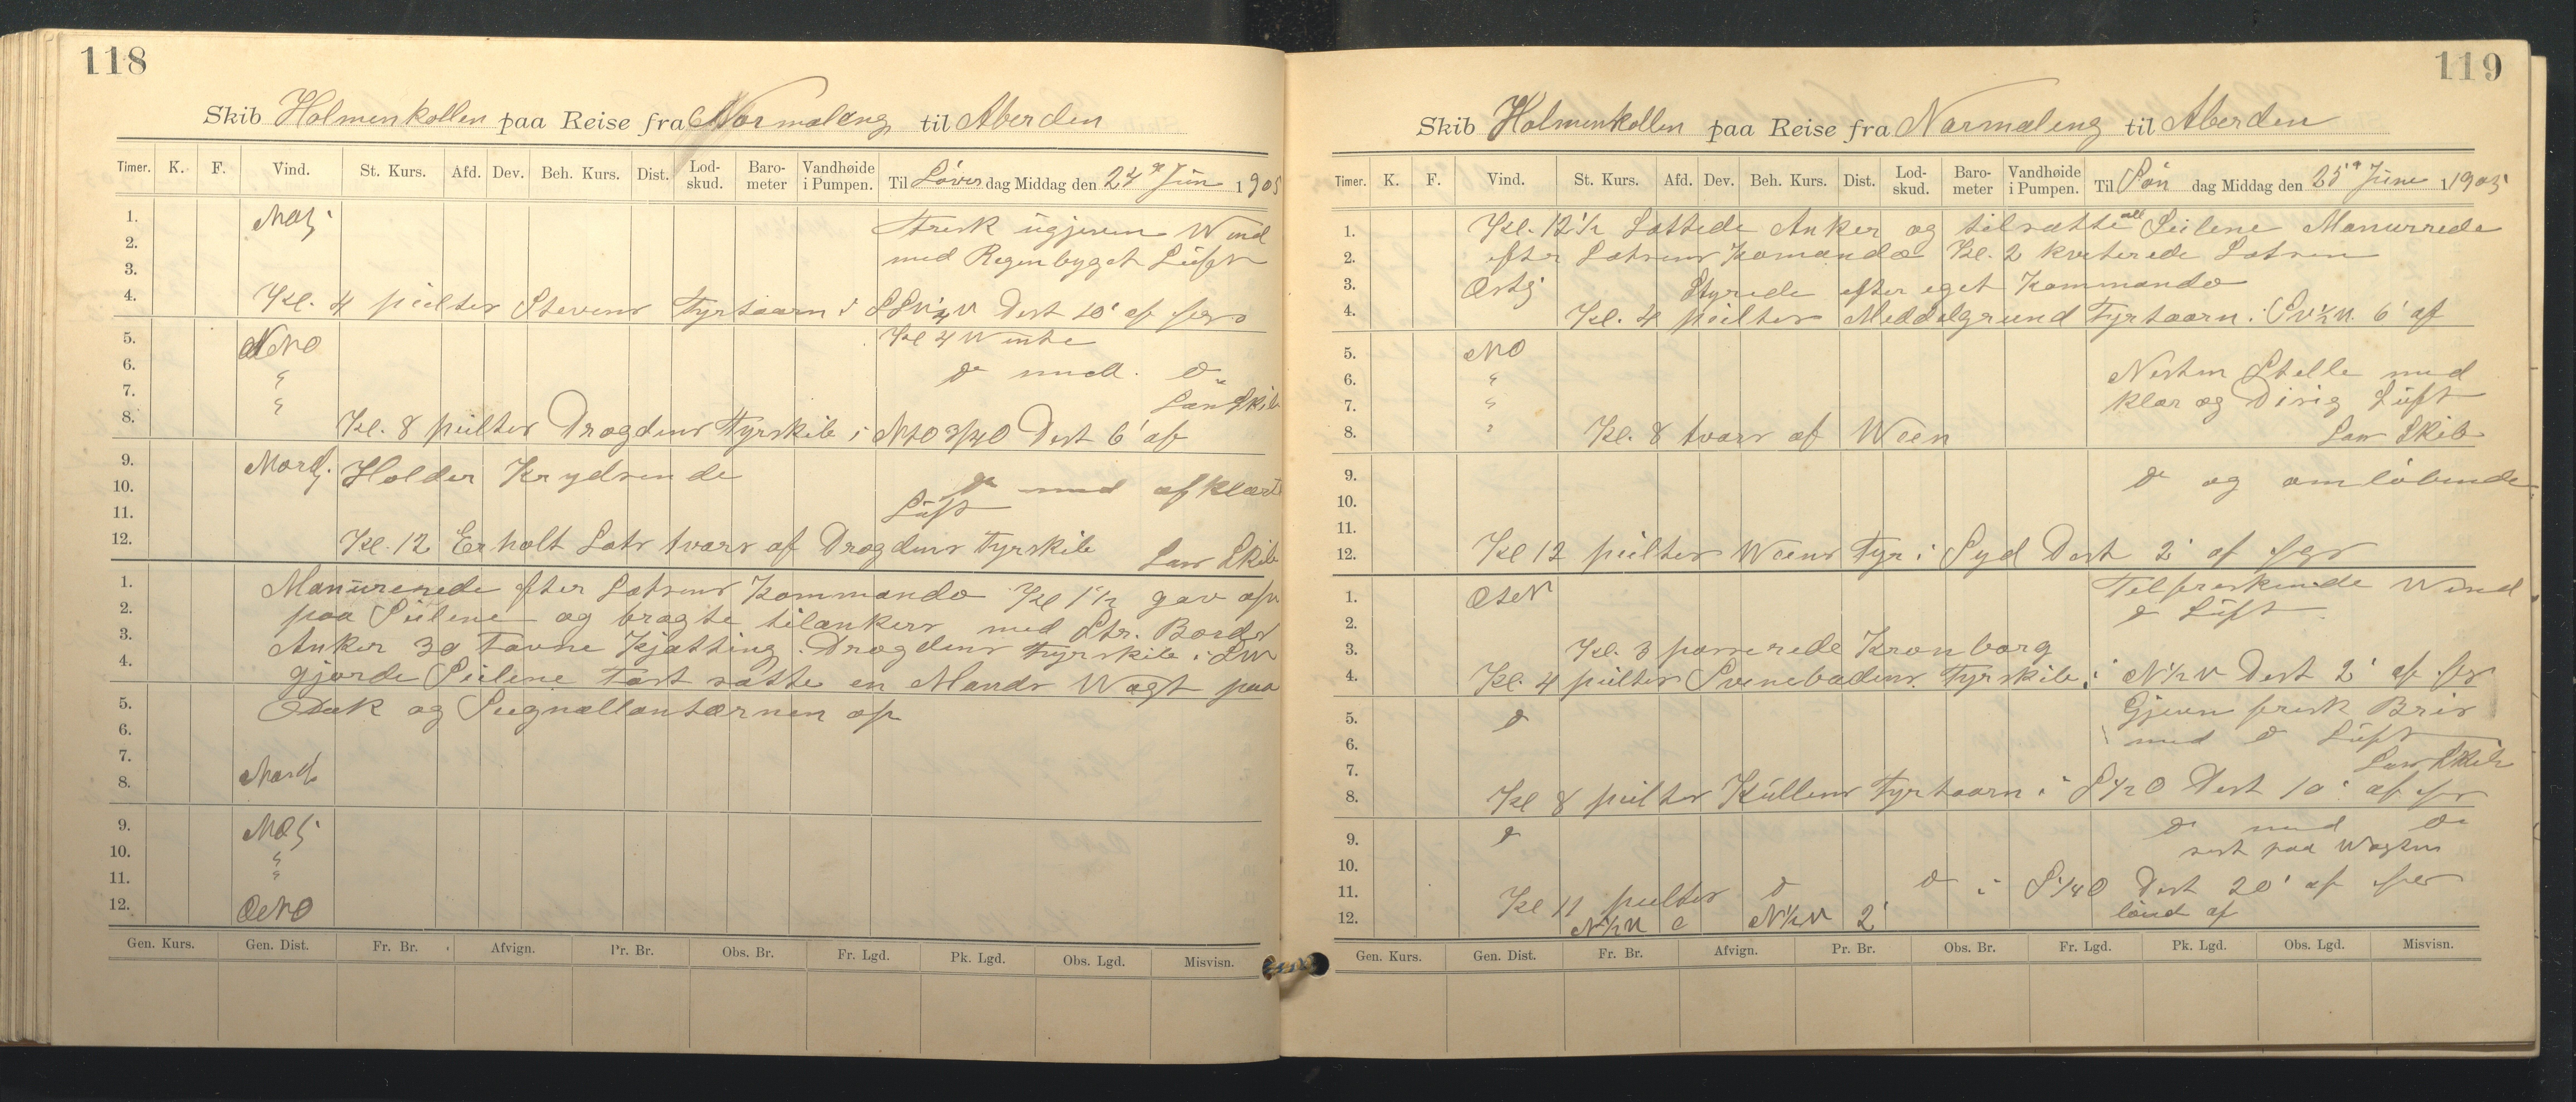 118
Skib Holmenkollen paa Reise fra Normaleng til Aberden
Timer. K. F. Vind. St. Kurs. Afd. Dev. Beh. Kurs. Dist. Lod-skud. Baro-meter Vandhøide i Pumpen. Til Löver dag Middag den 24de Jun 1905
1. NOlj Frisk ugjeven Wind
2. med Regenbyget Luft
3.
4. Kl. 4 peilter Stevens Fyrtaarn i Dist 10' af
5. NNO Kl 4 Wente
6. " do med do
7. " Lan Skib
8. Kl. 8 peilter Drogdens Fyrskib i NtO 3/4 O Dist 6' af
9. Nordl. Holder Krydsende
10. do med afklart
11. Luft
12. Kl. 12 Erholt Lots tvars af Drogdens Fyrskib Lan Skib
1. Manürerede efter Lotsens Kommando Kl 1½ gav op
2. paa Seilene og bragte tilankers med Str. Bords
3. Anker 30 Favne Kjætting. Drogdens Fyrskib i SW
4. gjorde Seilene Fast satte en Mands Wagt paa
5. Dæk og Signallantærnen op
6.
7.
8. Nordl
9. NOlj
10. "
11. "
12. ONO
Gen. Kurs. Gen. Dist. Fr. Br. Afvign. Pr. Br. Obs. Br. Fr. Lgd. Pk. Lgd. Obs. Lgd. Misvisn.
119
Skib Holmenkollen paa Reise fra Normaleng til Aberden
Timer. K. F. Vind. St. Kurs. Afd. Dev. Beh. Kurs. Dist. Lod-skud. Baro-meter Vandhøide i Pumpen. Til Sön dag Middag den 25de June 1905
1. Kl. 12½ Lættede Anker og tilsatte all Seilene Manurrede
2. efter Lotsens Komando Kl. 2 kviterede Lotsen
3. Østlj Styrede efter eget Kommando
4. Kl. 4 peilter Meddelgrund Fyrtaarn i 6' af
5. NO
6. " Nesten Stelle med
7. " klar og Disig Luft
8. " Kl. 8 tvars af Ween Lan Skib
9. do og omlöbende
10.
11.
12. Kl 12 peilter Weens Fyr i Syd Dist 2' af
1. Tilfreskende Wind
2. do Luft
3. Kl. 3 passerede Kronborg
4. Kl. 4 peilter Svinebadens Fyrskib i N½W Dist 2' af
5. do Gjeven fresk Bris
6. med do Luft
7. Lan Skib
8. Kl 8 peilter Kullens Fyrtaarn i S½O Dist 10' af
9. do do med do
10. sost paa Wagten
11. Kl 11 peilter do do i S¼O Dist 20' af
12. N½W N½W 2'
Gen. Kurs. Gen. Dist. Fr. Br. Afvign. Pr. Br. Obs. Br. Fr. Lgd. Pk. Lgd. Obs. Lgd. Misvisn.